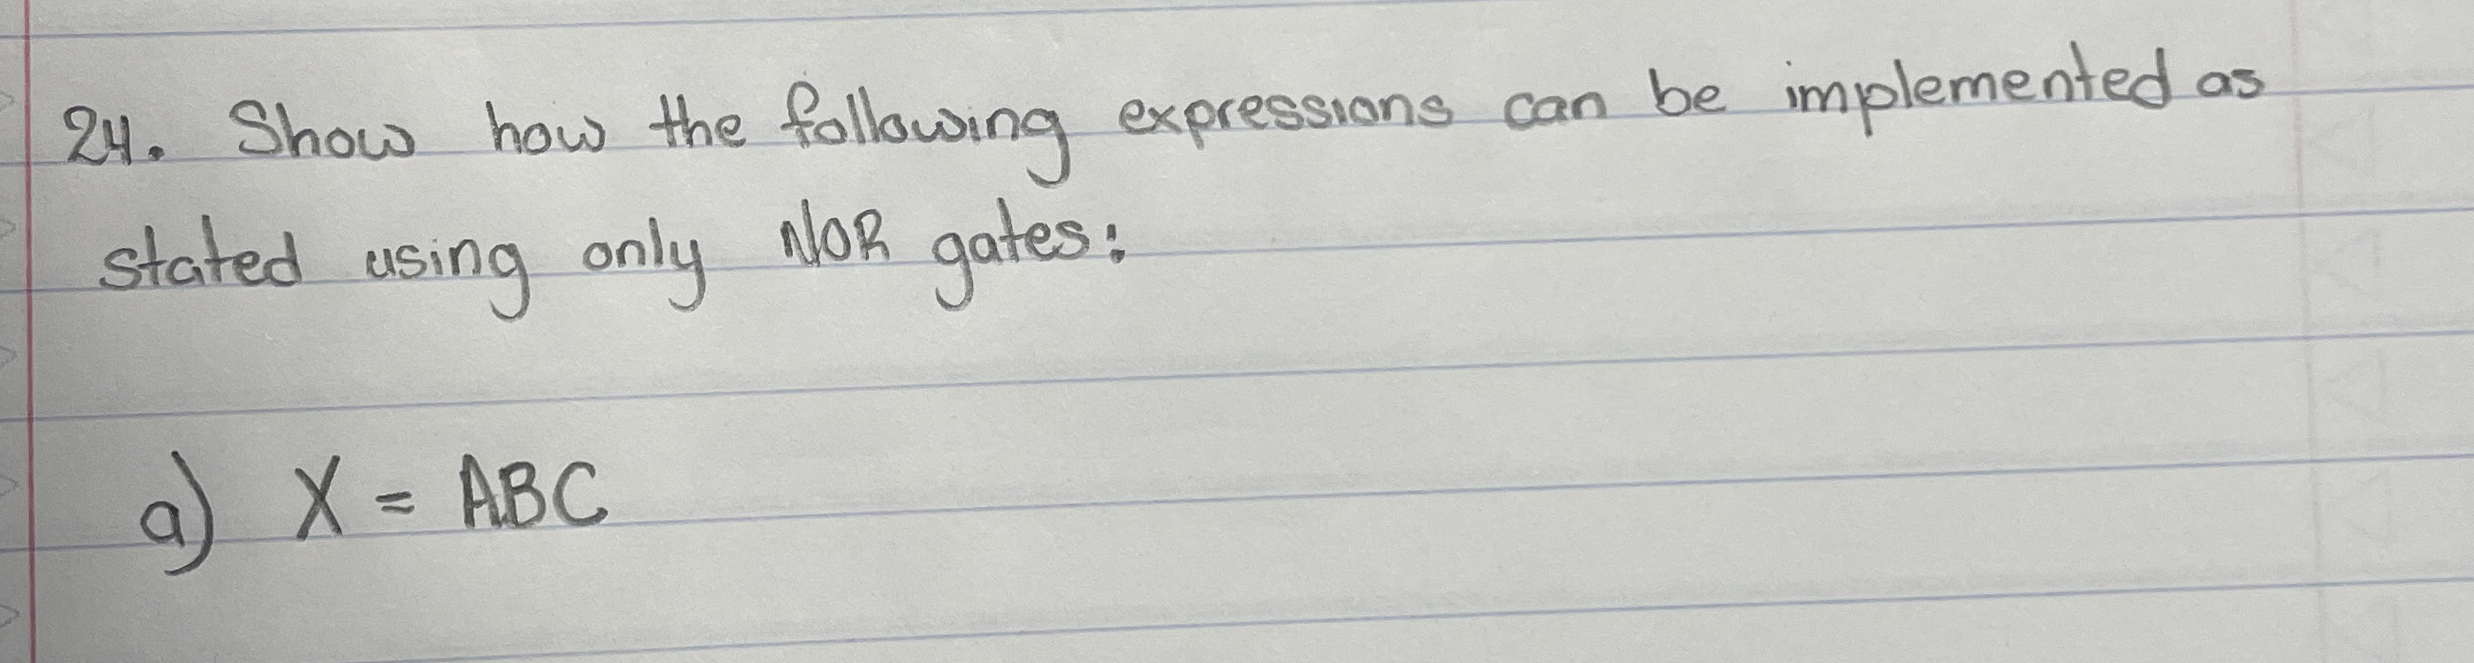 24. Show how the following expressions can be implemented as
stated using only NOR gates:
a) X = ABC